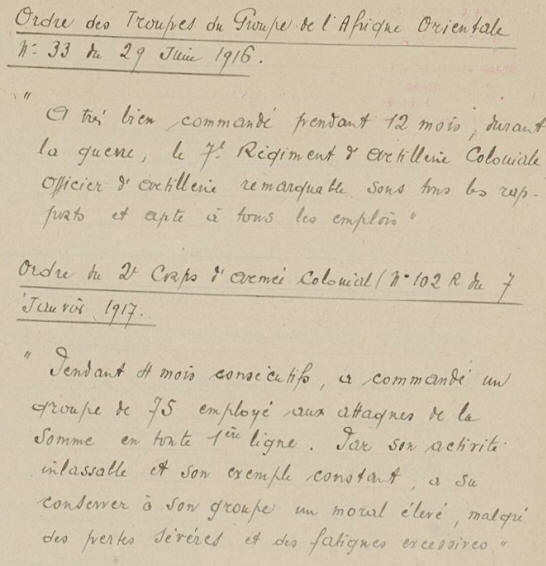 Ordre des Troupes du Groupe de l'Afrique Orientale
N° 33 du 29 Juin 1916.
" A très bien commandé pendant 12 mois, durant
la guerre, le 7e Régiment d'Artillerie Coloniale
Officier d'Artillerie remarquable sous tous les rap-
ports et apte à tous les emplois "
Ordre du 2e Corps d'Armée Colonial / N° 102 R du 7
Janvier 1917.
" Pendant 4 mois consécutifs, a commandé un
groupe de 75 employé aux attaques de la
Somme en toute 1ère ligne. Par son activité
inlassable et son exemple constant, a su
conserver à son groupe un moral élevé, malgré
des pertes sévères et des fatigues excessives "